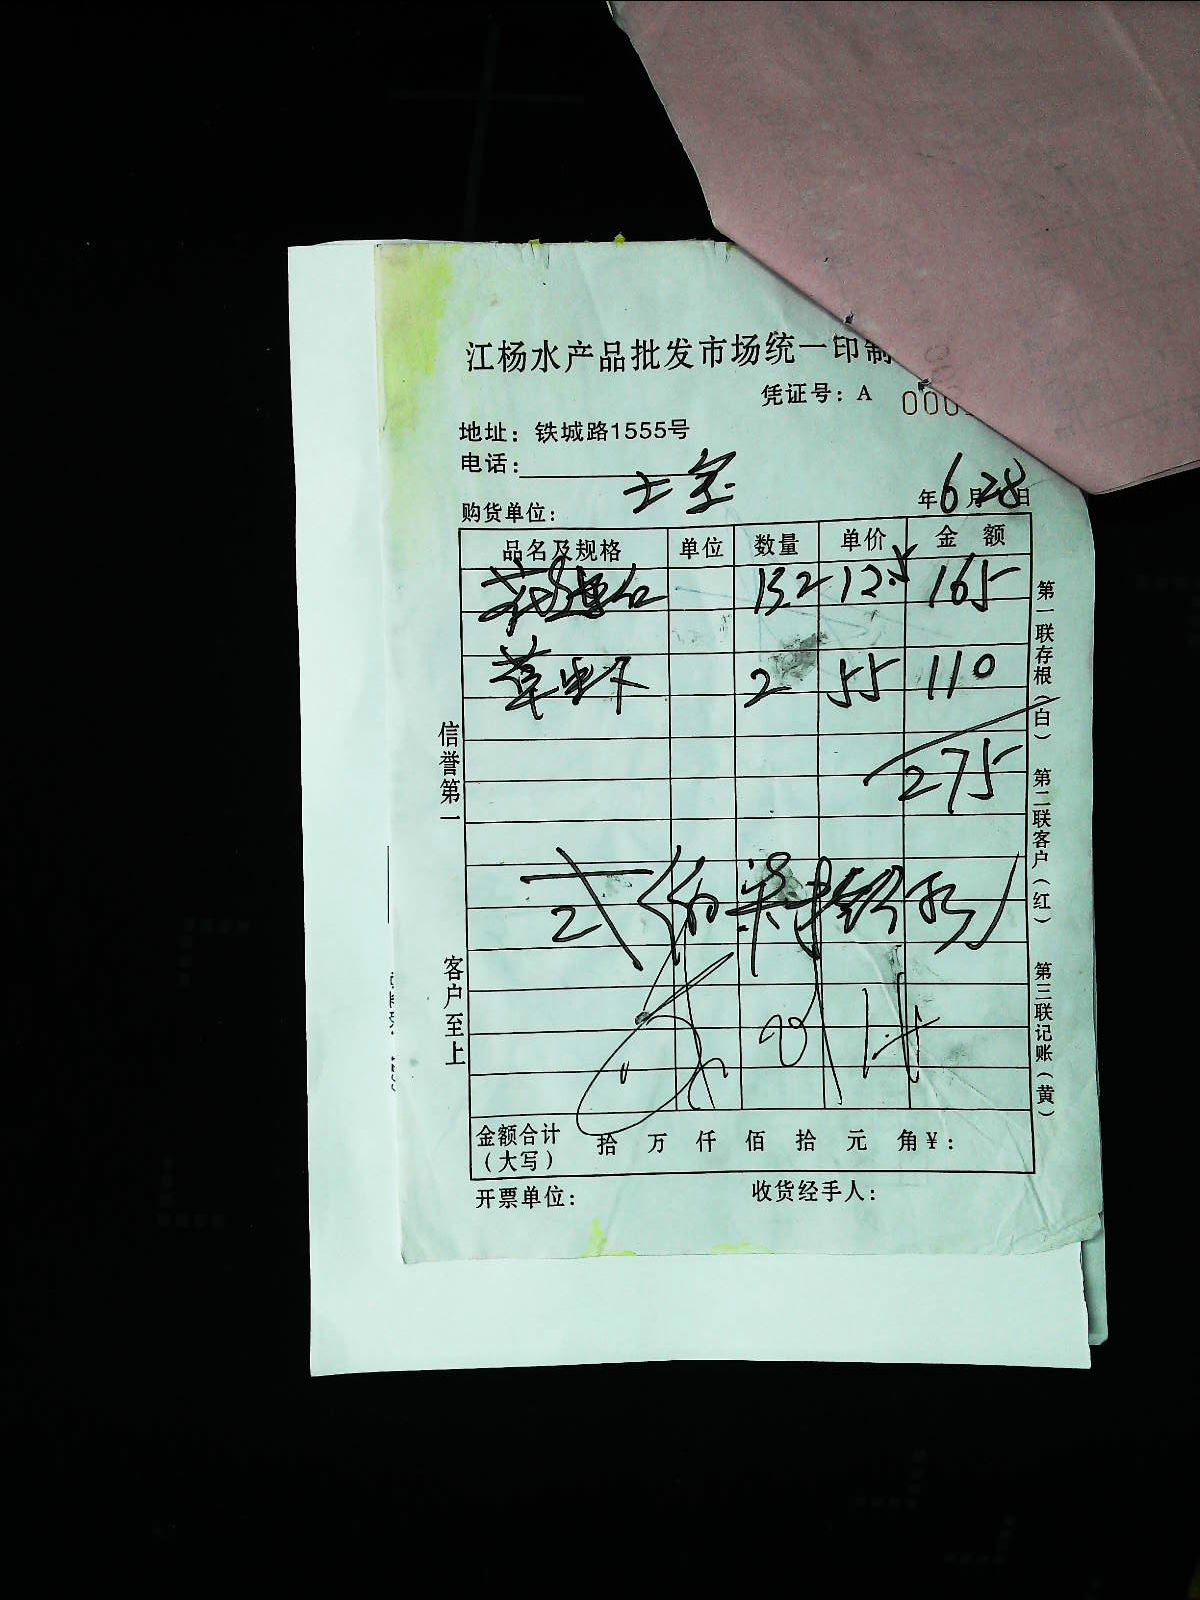 江杨水产品批发市场统一印制
凭证号：A 000
地址：铁城路1555号
电话：
购货单位： 年6月28日
品名及规格 单位 数量 单价 金额
132 12.5 165
草虾 2 55 110
275
贰佰柒拾伍
金额合计（大写） 拾 万 仟 佰 拾 元 角¥：
开票单位： 收货经手人：
信誉第一
客户至上
第一联存根（白）
第二联客户（红）
第三联记账（黄）